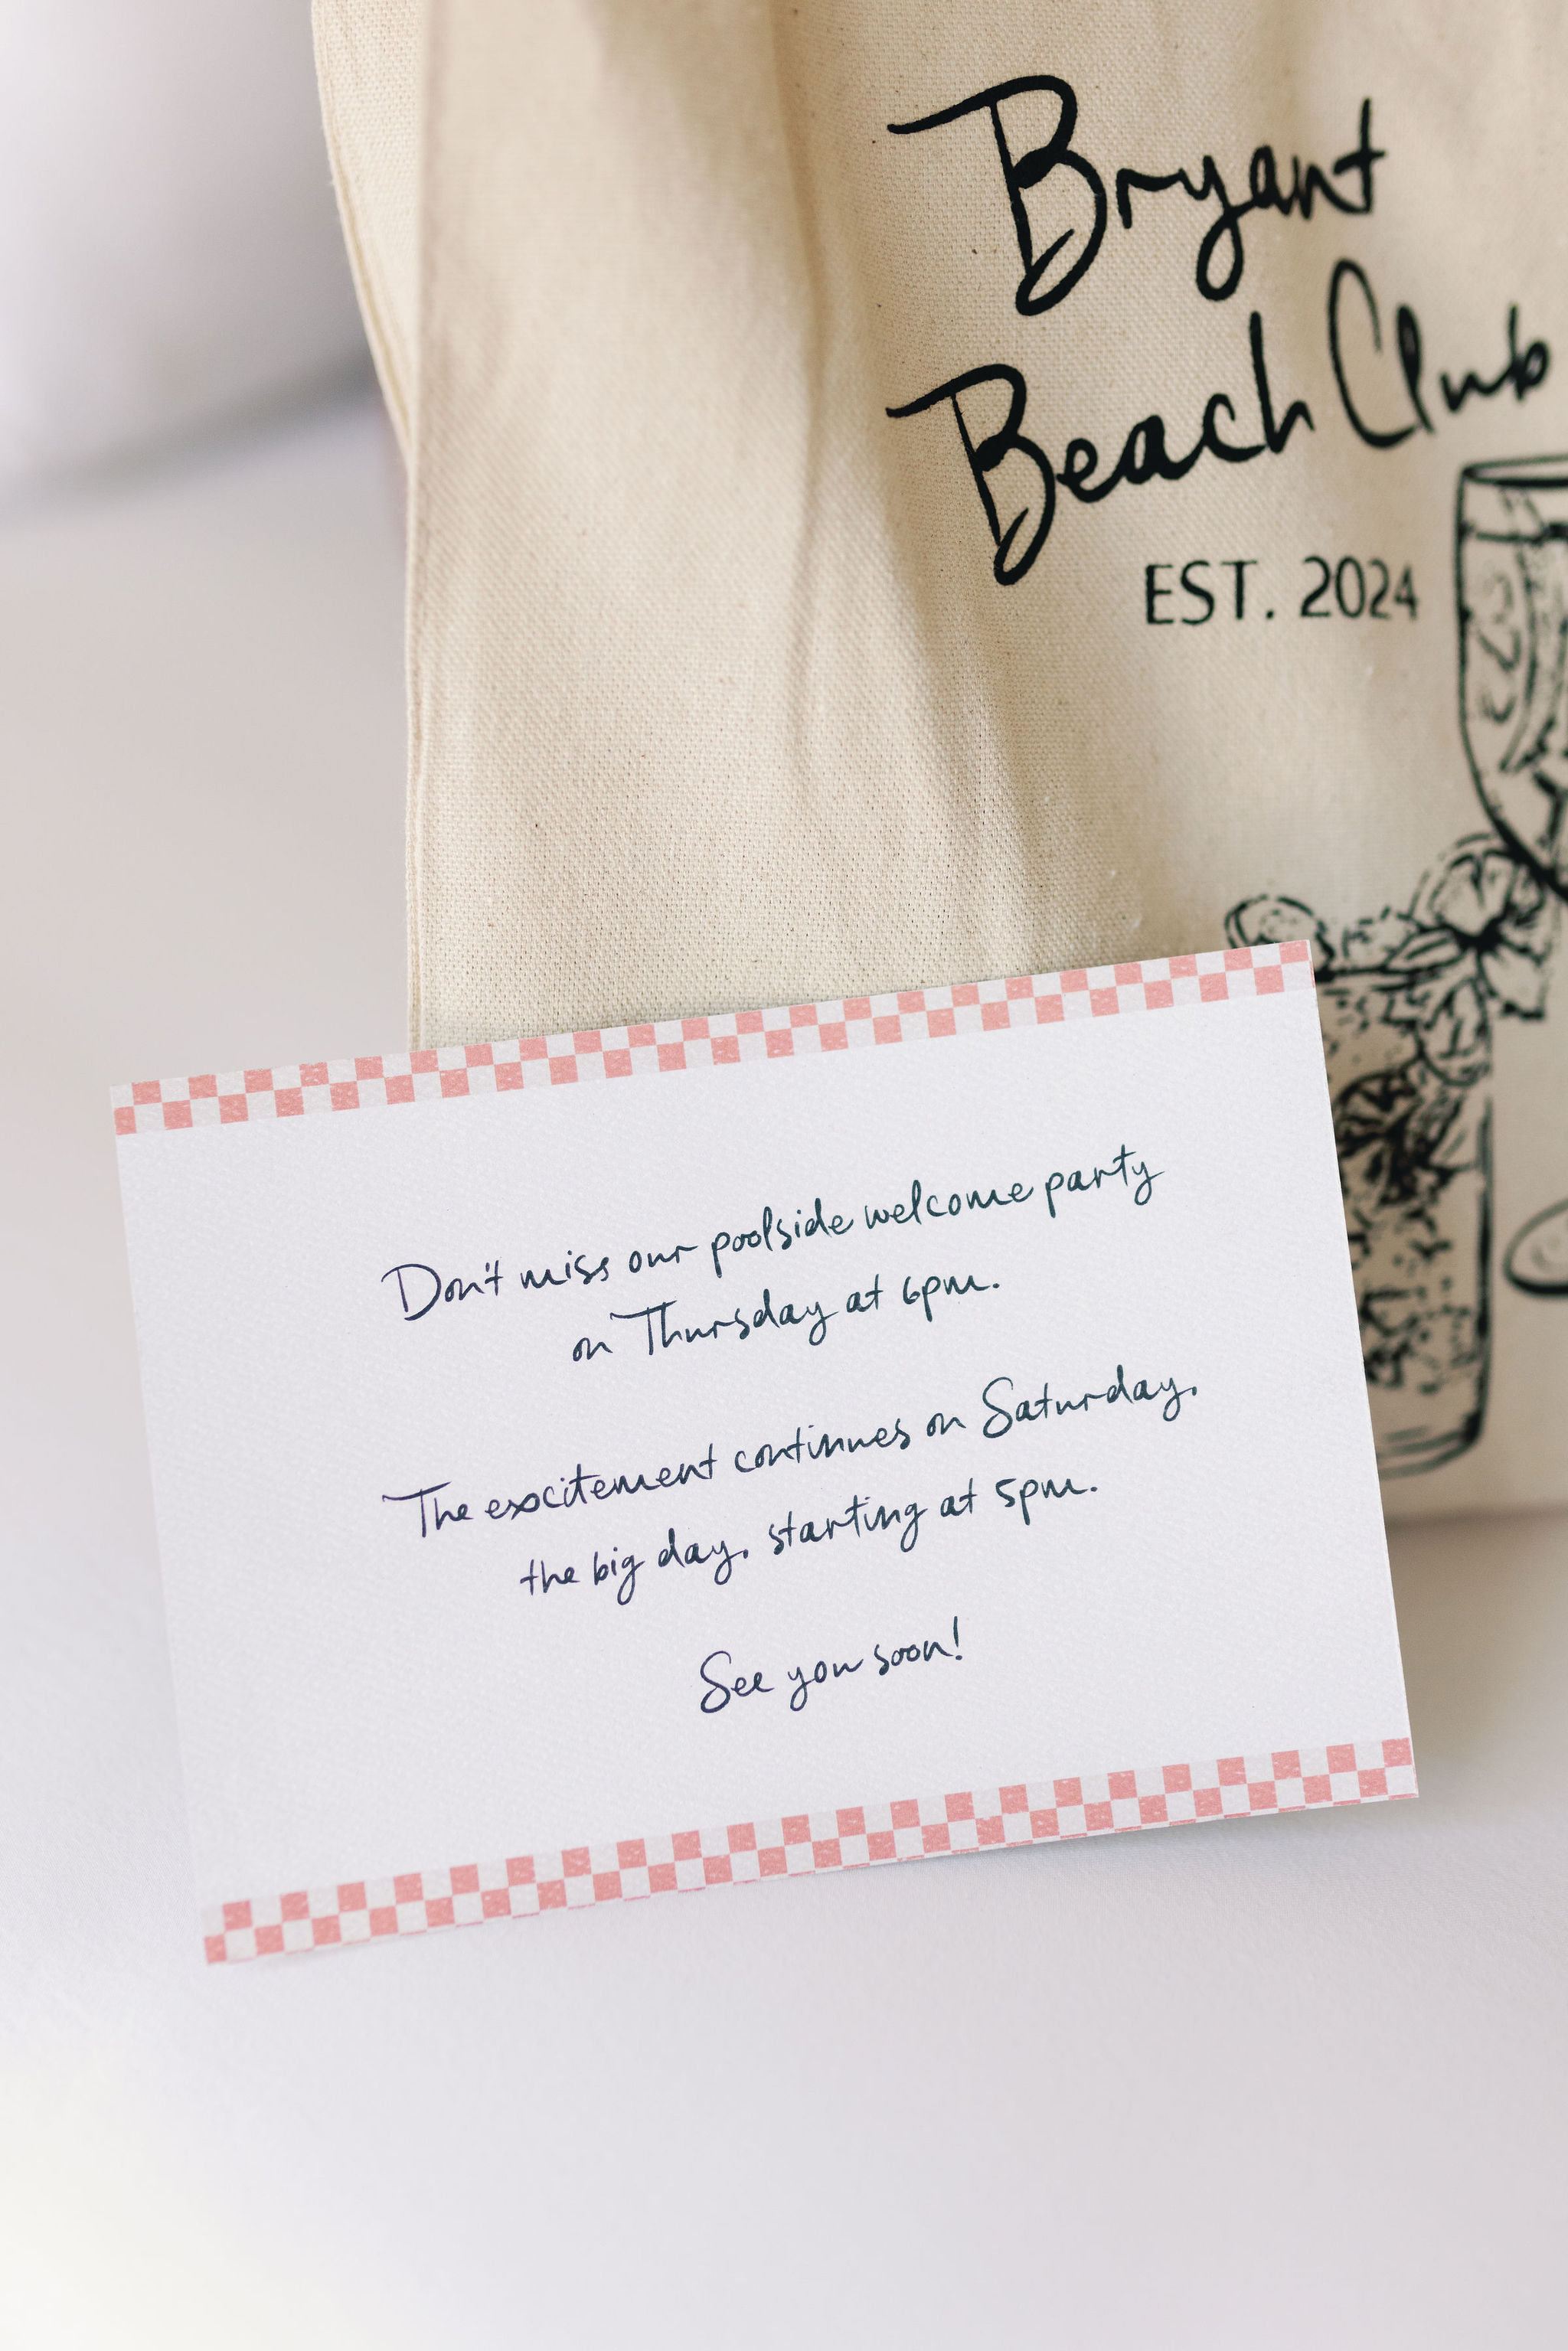 Bryant
Beach Club
EST. 2024
Don't miss our poolside welcome party
on Thursday at 6pm.
The excitement continues on Saturday,
the big day, starting at 5pm.
See you soon!